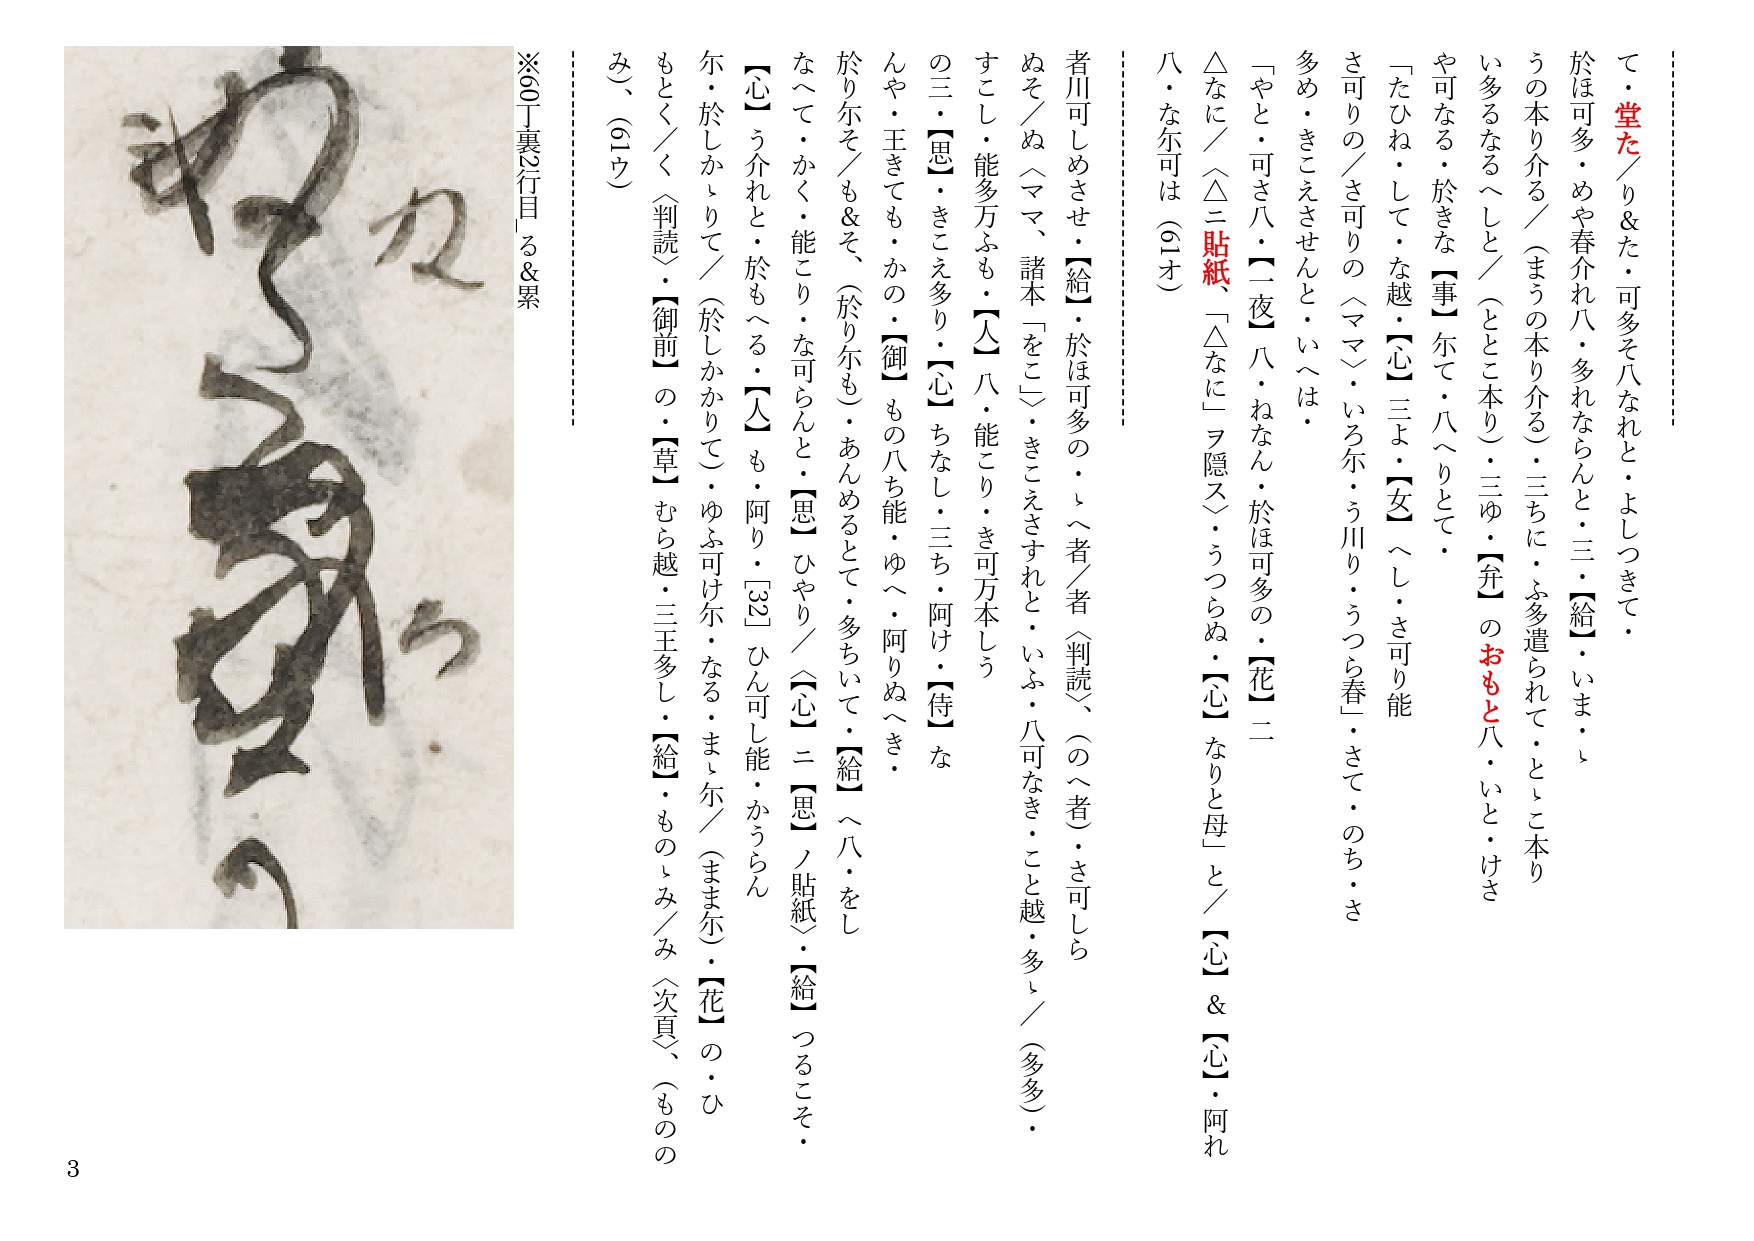 て・堂た／り＆た・可多そ八なれと・よしつきて・
於ほ可多・めや春介れ八・多れならんと・三・【給】・いま・ゝ
うの本り介る／（まうの本り介る）・三ちに・ふ多遣られて・とゝこ本り
い多るなるへしと／（ととこ本り）・三ゆ・【弁】のおもと八・いと・けさ
や可なる・於きな【事】尓て・八へりとて・
「たひね・して・な越・【心】三よ・【女】へし・さ可り能
さ可りの／さ可りの〈ママ〉・いろ尓・う川り・うつら春」・さて・のち・さ
多め・きこえさせんと・いへは・
「やと・可さ八・【一夜】八・ねなん・於ほ可多の・【花】二
△なに／〈△ニ貼紙、「△なに」ヲ隠ス〉・うつらぬ・【心】なりと母」と／【心】＆【心】・阿れ
八・な尓可は（61オ）
者川可しめさせ・【給】・於ほ可多の・ゝへ者／者〈判読〉、（のへ者）・さ可しら
ぬそ／ぬ〈ママ、諸本「をこ」〉・きこえさすれと・いふ・八可なき・こと越・多ゝ／（多多）・
すこし・能多万ふも・【人】八・能こり・き可万本しう
の三・【思】・きこえ多り・【心】ちなし・三ち・阿け・【侍】な
んや・王きても・かの・【御】もの八ち能・ゆへ・阿りぬへき・
於り尓そ／も＆そ、（於り尓も）・あんめるとて・多ちいて・【給】へ八・をし
なへて・かく・能こり・な可らんと・【思】ひやり／〈【心】ニ【思】ノ貼紙〉・【給】つるこそ・
【心】う介れと・於もへる・【人】も・阿り・［32］ひん可し能・かうらん
尓・於しかゝりて／（於しかかりて）・ゆふ可け尓・なる・まゝ尓／（まま尓）・【花】の・ひ
もとく／く〈判読〉・【御前】の・【草】むら越・三王多し・【給】・ものゝみ／み〈次頁〉、（ものの
み）、（61ウ）
※60丁裏2行目「る＆累
3